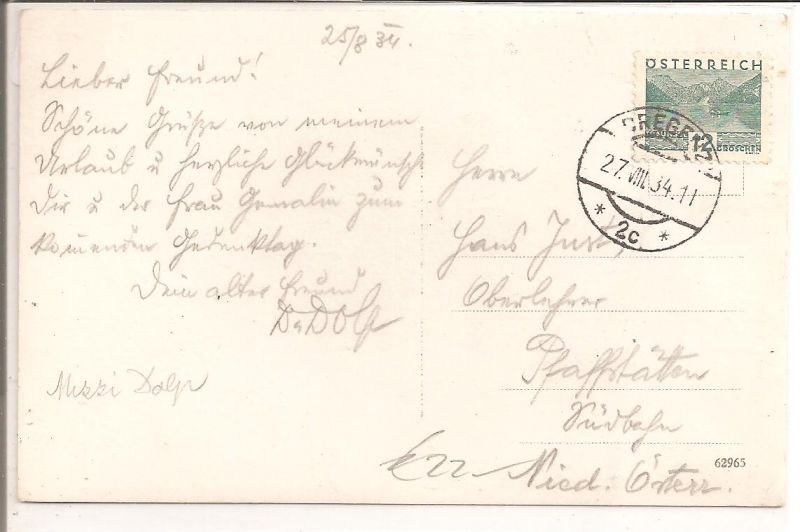 25/8 34.
Lieber Freund!
Schöne Grüße von meinem
Urlaub u herzliche Glückwünsch
Dir u der Frau Gemalin zum
komenden Gedenktag.
Dein alter Freund
Dr Dolp
Mizzi Dolp
ÖSTERREICH
12
GROSCHEN
BREGENZ
27.VIII.34.11
* 2c *
Herrn
Hans Just,
Oberlehrer
Pfaffstätten
Südbahn
Nied. Österr.
62965